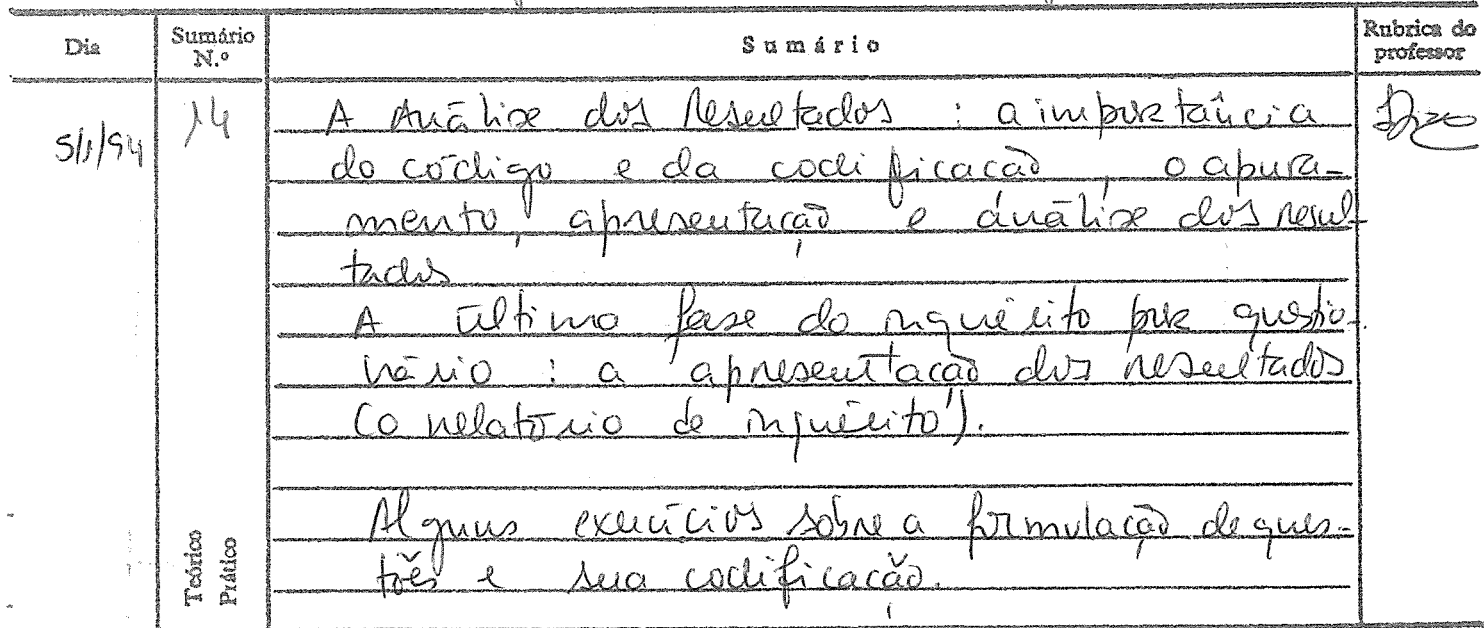 Dia
Sumário
N.º
Sumário
Rubrica do
professor
5/1/94
14
A Análise dos Resultados : a importância
do código e da codificação, o apura-
mento, apresentação e análise dos resul-
tados
A última fase do inquérito por questio-
nário : a apresentação dos resultados
(o relatório de inquérito).
Alguns exercícios sobre a formulação de ques-
tões e sua codificação.
Teórico
Prático